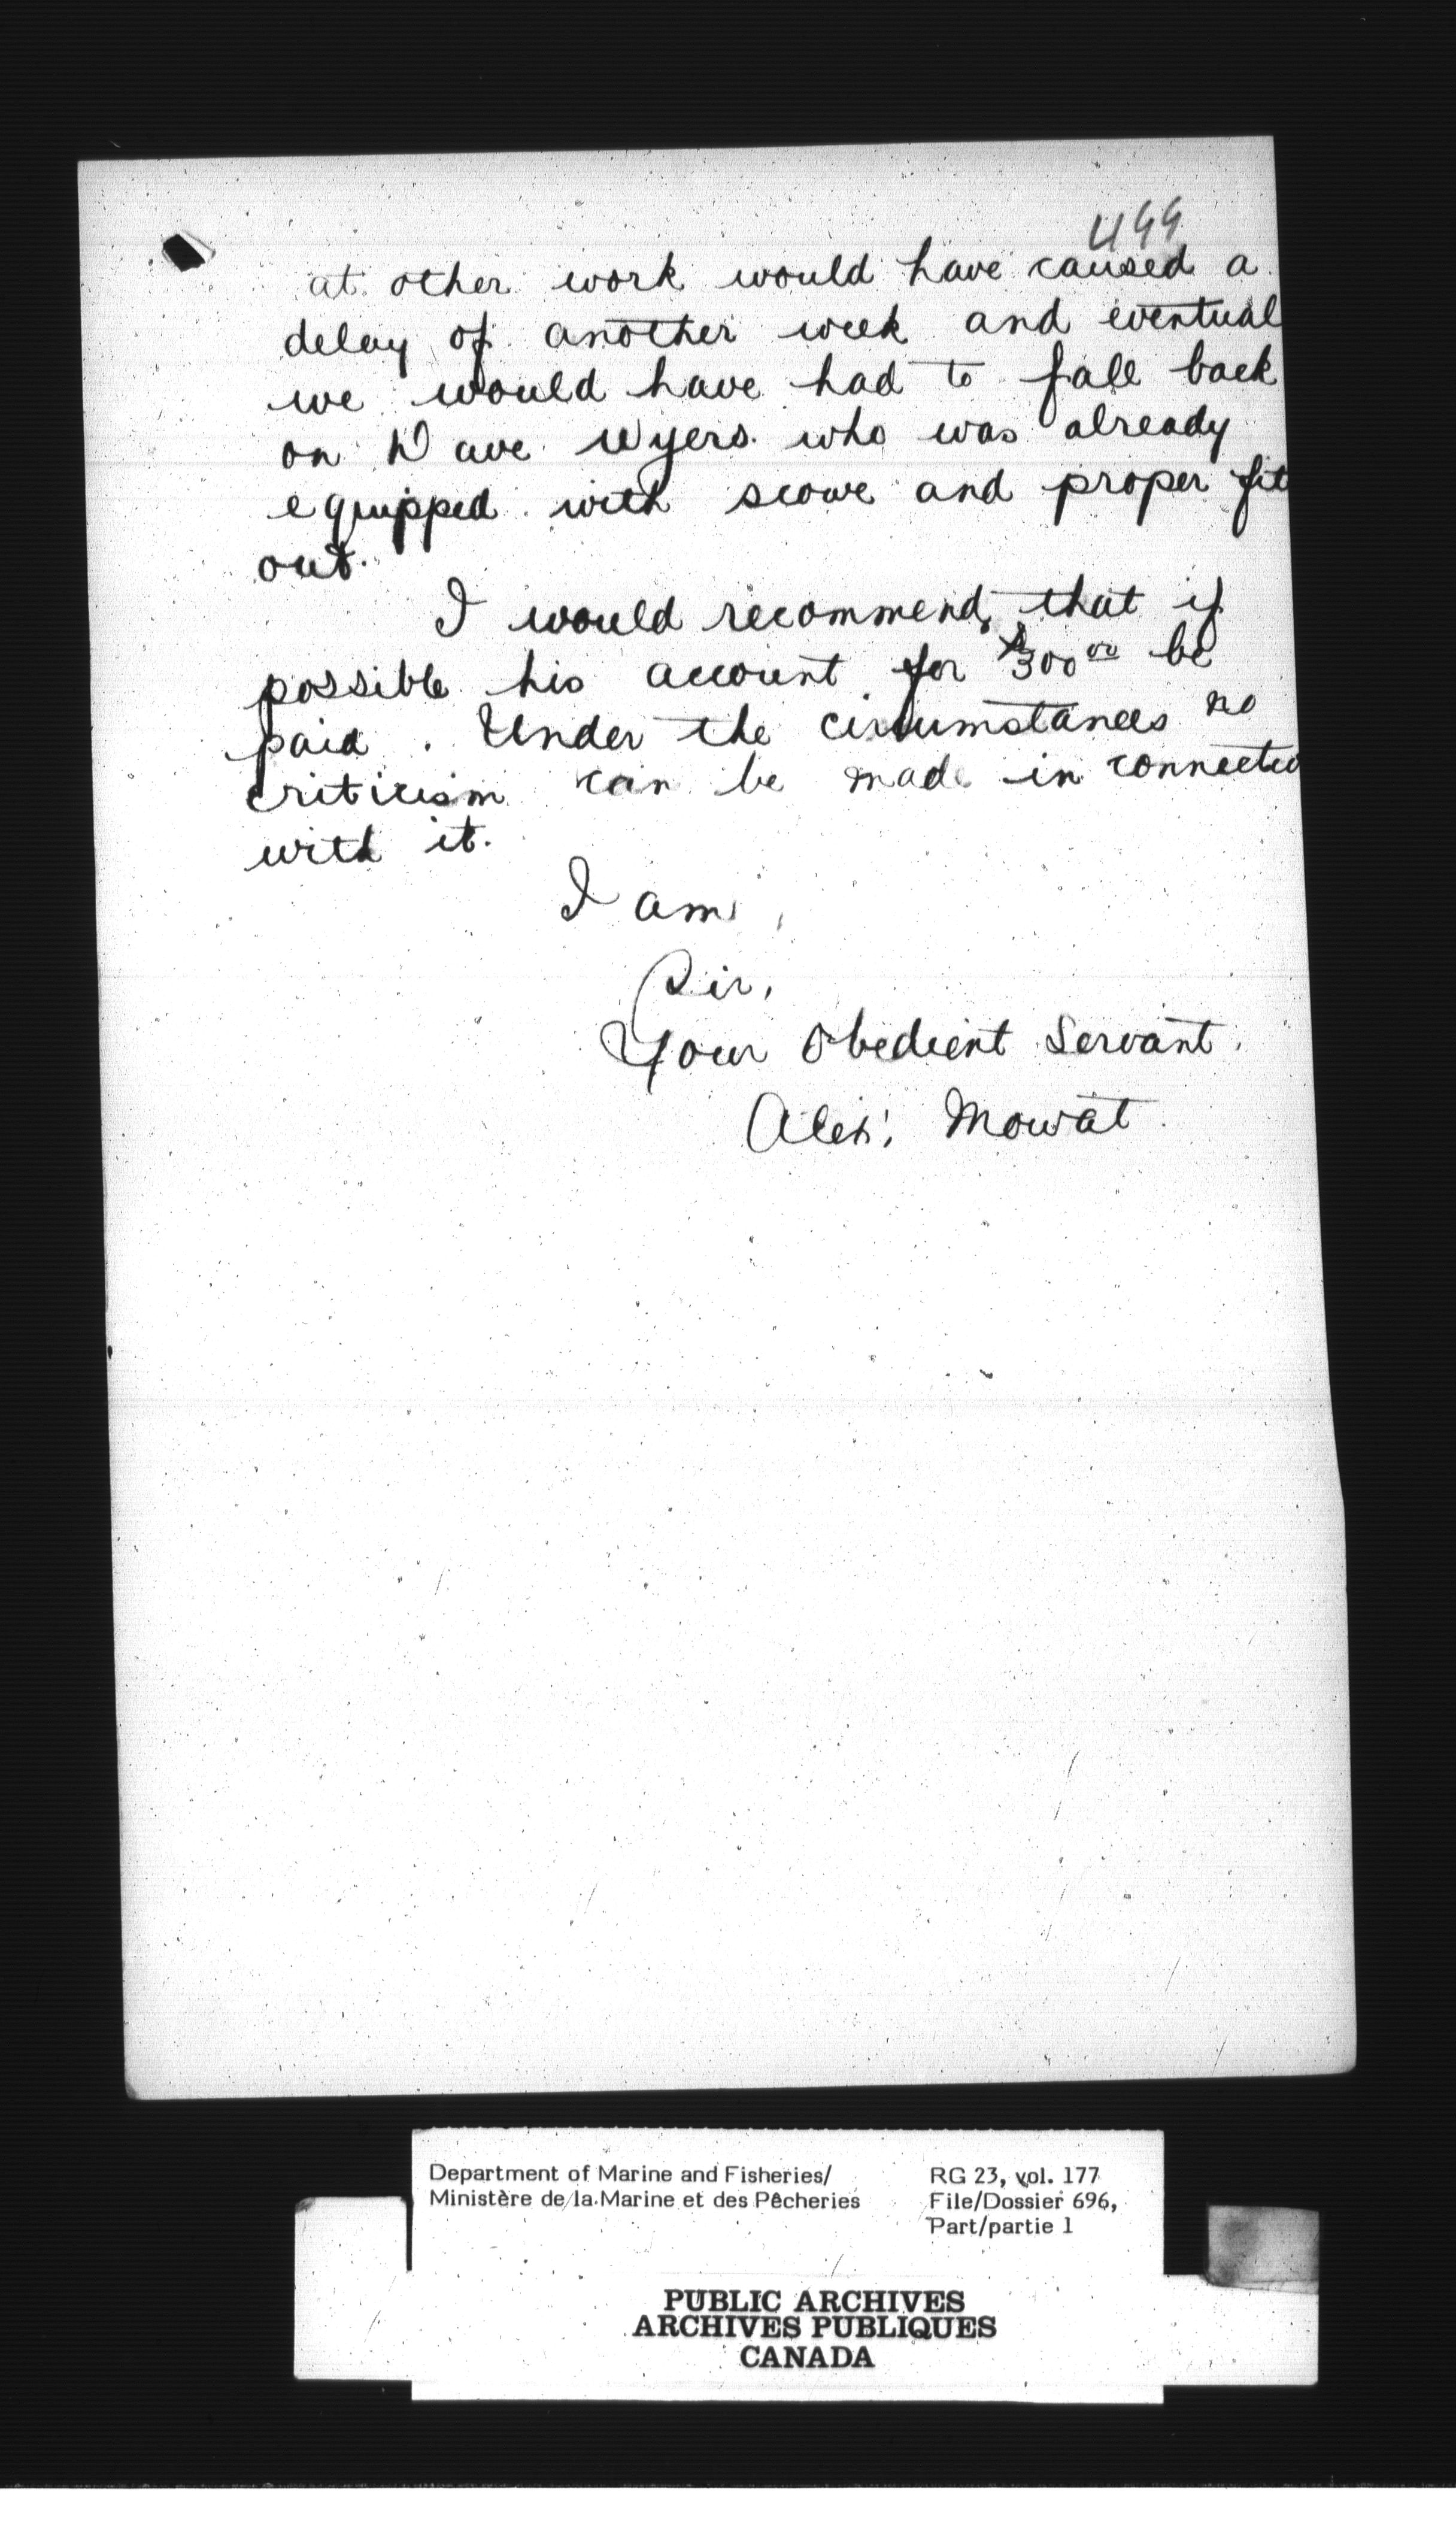 499
at other work would have caused a
delay of another week and eventual
we would have had to fall back
on Dave Wyers who was already
equipped with scowe and proper fit
out.
I would recommend, that if
possible his account for $300 00 be
paid. Under the circumstances no
criticism can be made in connectio
with it.
I am,
Sir,
Your Obedient Servant.
Alex; Mowat.
Department of Marine and Fisheries/
Ministère de la Marine et des Pêcheries
RG 23, vol. 177
File/Dossier 696,
Part/partie 1
PUBLIC ARCHIVES
ARCHIVES PUBLIQUES
CANADA